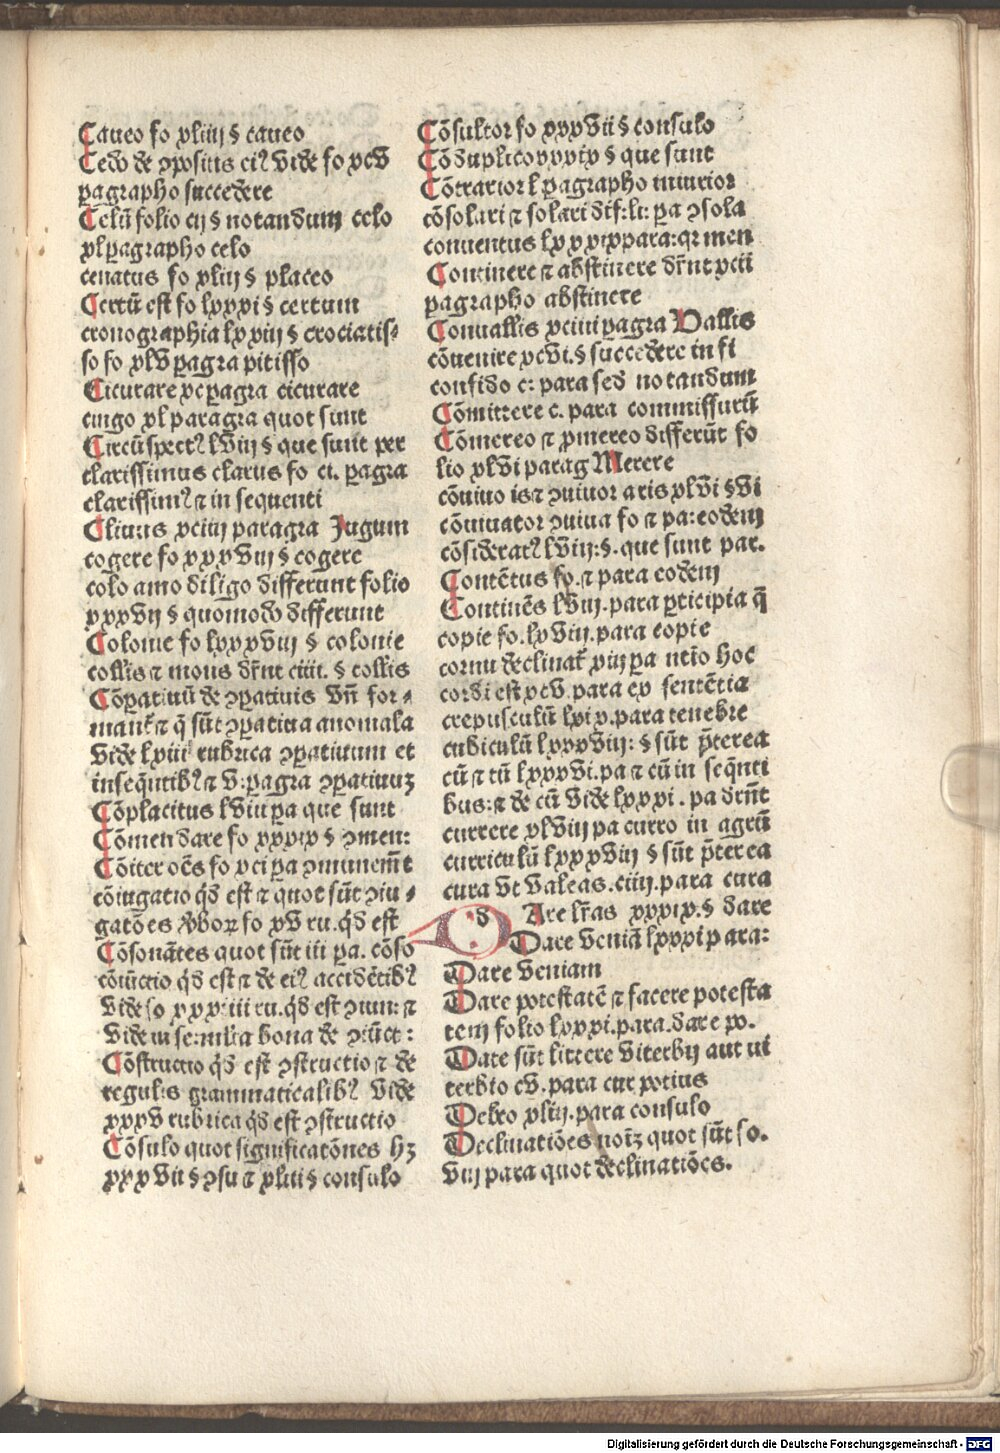 Caueo fo xliiij § caueo
Cedo de ꝯpositis eiꝰ vide fo xcv
ꝑagrapho succedere
Celū folio cij § notandum celo
xl ꝑagrapho celo
cenatus fo xliij § placeo
Certū est fo lxxxi § certum
cronographia lxxiij § crociatis⸗
so fo xlv ꝑagra pitisso
Cicurare xc ꝑagra cicurare
cingo xl paragra quot sunt
Circūspectꝰ lviij § que sunt per
clarissimus clarus fo ci. ꝑagra
clarissimꝰ ⁊ in sequenti
Cliuus xciiij paragra Jugum
cogere fo xxxviij § cogere
colo amo diligo differunt folio
xxxvij § quomodo differunt
Colonie fo lxxxviij § colonie
collis ⁊ mons drn̄t ciiii. § collis
Cōꝑatiuū de ꝯꝑatiuis vn̄ for⸗
manť ⁊ q̄ sūt ꝯꝑatiua anomala
vide lxiii rubrica ꝯꝑatiuum et
in seqn̄tibꝰ ⁊ v: ꝑagra ꝯꝑatiuuꝫ
Cōplacitus lviii ꝑa que sunt
Cōmendare fo xxxix § ꝯmen:
Cōiter oēs fo xci ꝑa ꝯmunem̄t
cōiugatio qd̄ est ⁊ quot sūt ꝯiu⸗
gatōes v̓boꝝ fo xv ru. qd̄ est
Cōsonātes quot sūt iii ꝑa. cōso
cōiūctio qd̄ est ⁊ de eiꝰ accidētibꝰ
vide fo xxxiiii ru. qd̄ est ꝯiun: ⁊
vide in se:mlia bona de ꝯiūct:
Cōstructio qd̄ est ꝯstructio ⁊ de
regulis grammaticalibꝰ vide
xxxv rubrica qd̄ est ꝯstructio
Cōsulo quot significatōnes hꝫ
xxxvii § ꝯsu ⁊ xliii § consulo
Cōsultor fo xxxvii § consulo
Cōduplico xxxix § que sunt
Cōtrarior l ꝑagrapho iniurior
cōsolari ⁊ solari dif:li: ꝑa ꝯsola
conuentus lxxxix para: qr men
Continere ⁊ abstinere drn̄t xcii
ꝑagrapho abstinere
Conuallis xciiii ꝑagra Vallis
cōuenire xcvi. § succedere in fi
confido c: para sed notandum
Cōmittere c. para commissurū
Cōmereo ⁊ ꝓmereo differūt fo
lio xlvi parag Merere
cōuiuo is ⁊ ꝯuiuor aris xlvi § vi
cōuiuator ꝯuiua fo ⁊ pa: eodem
cōsideratꝰ lviij: §. que sunt par.
Contētus fo. ⁊ para eodem
Continēs lviij. para ꝑticipia q̄
copie fo. lxviij. para copie
cornu declinať xiij pa neūo hoc
cordi est xcv. para ex sentētia
crepusculū lxix. para tenebre
cubiculū lxxxviij: § sūt p̄terea
cū ⁊ tū lxxxvi. pa ⁊ cū in seqn̄ti
bus: ⁊ de cū vide lxxxi. pa drn̄t
currere xlviij pa curro in agrū
curriculū lxxxviij § sūt p̄terea
cura vt valeas. ciiij. para cura
d Are lr̄as xxxix. § dare
Dare veniā lxxxi para:
Dare veniam
Dare potestatē ⁊ facere potesta
tem folio lxxxi. para. dare po.
Date sūt littere viterbij aut vi
terbio cv. para cur potius
Debeo xliij. para consulo
Declinatiōes noīꝫ quot sūt fo.
viij para quot declinatiōes.
Digitalisierung gefördert durch die Deutsche Forschungsgemeinschaft - DFG